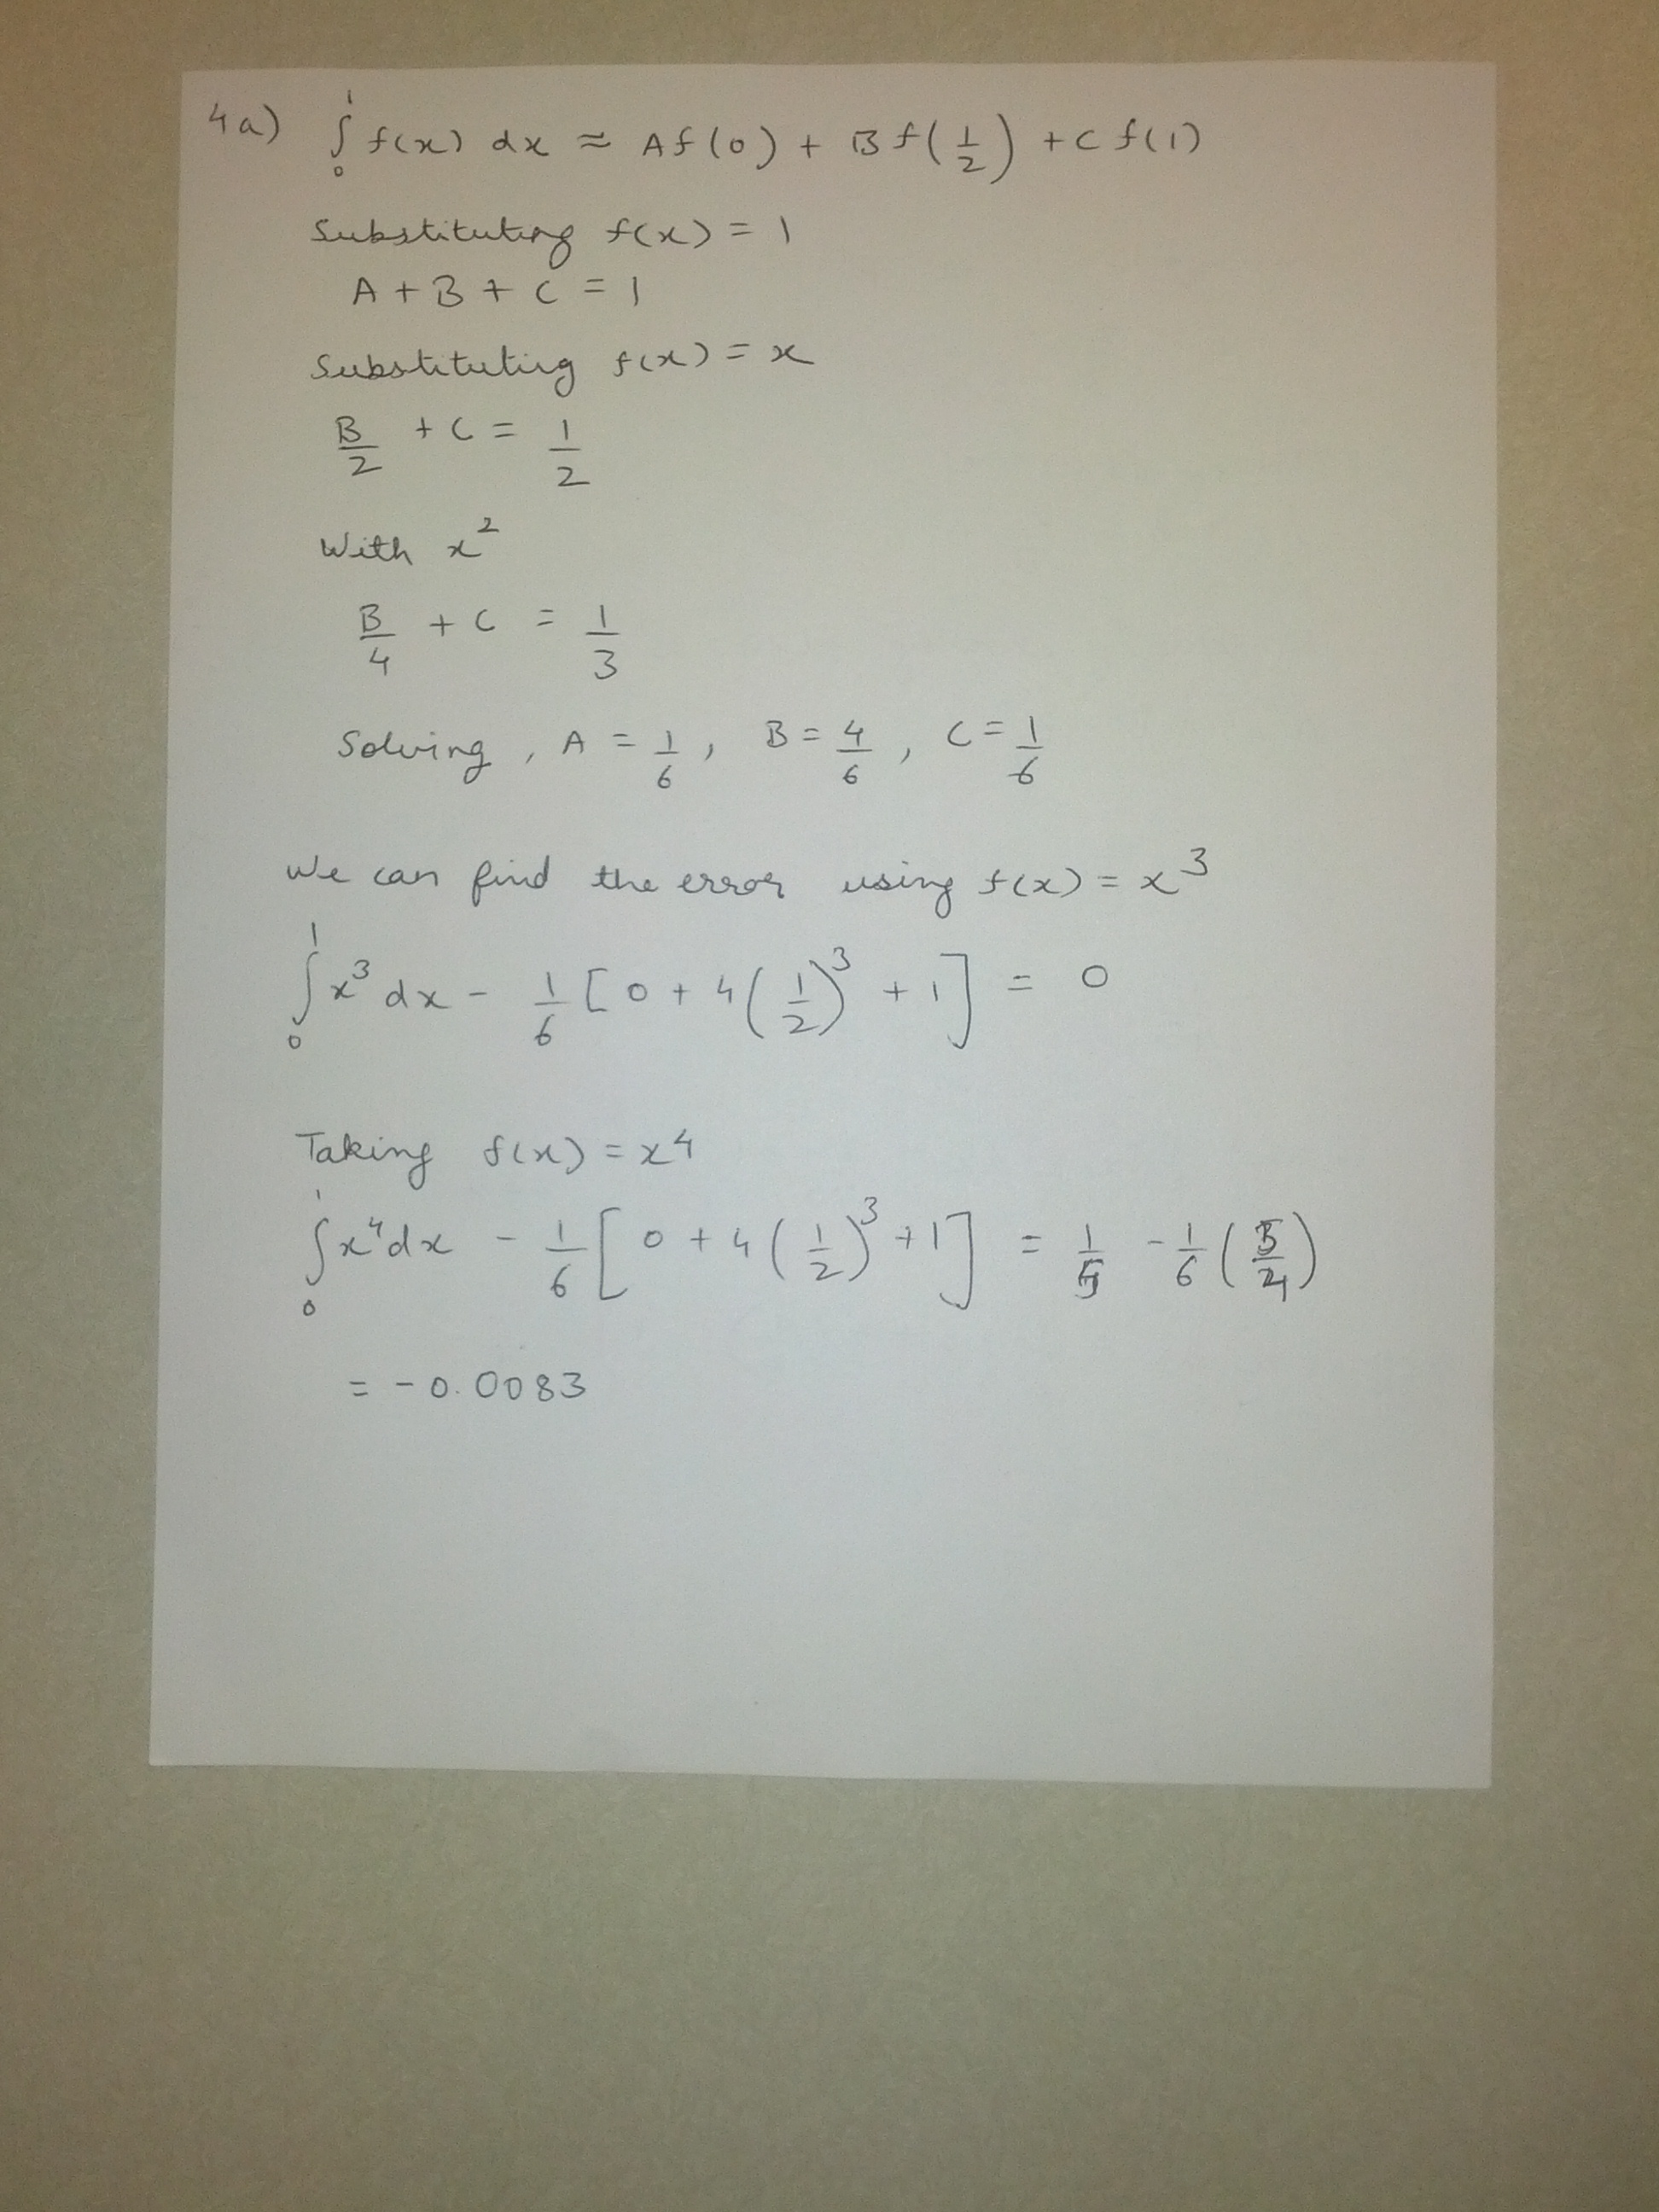 4a) ∫₀¹ f(x) dx ≈ Af(0) + Bf(1/2) + Cf(1)
Substituting f(x) = 1
A + B + C = 1
Substituting f(x) = x
B/2 + C = 1/2
With x²
B/4 + C = 1/3
Solving, A = 1/6, B = 4/6, C = 1/6
We can find the error using f(x) = x³
∫₀¹ x³ dx - 1/6 [0 + 4(1/2)³ + 1] = 0
Taking f(x) = x⁴
∫₀¹ x⁴ dx - 1/6 [0 + 4(1/2)³ + 1] = 1/5 - 1/6 (5/4)
= -0.0083